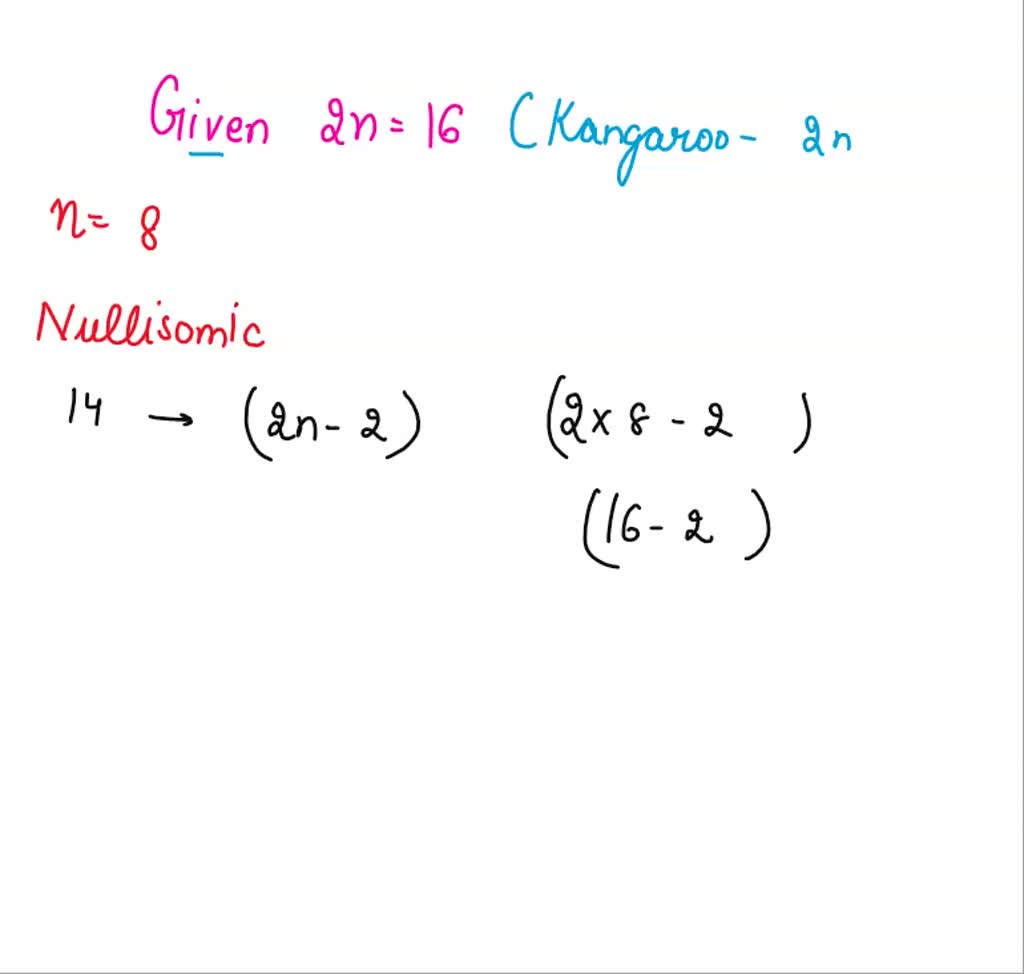 Given 2n = 16 (Kangaroo - 2n
n = 8
Nullisomic
14 → (2n - 2) (2 x 8 - 2 )
(16 - 2 )